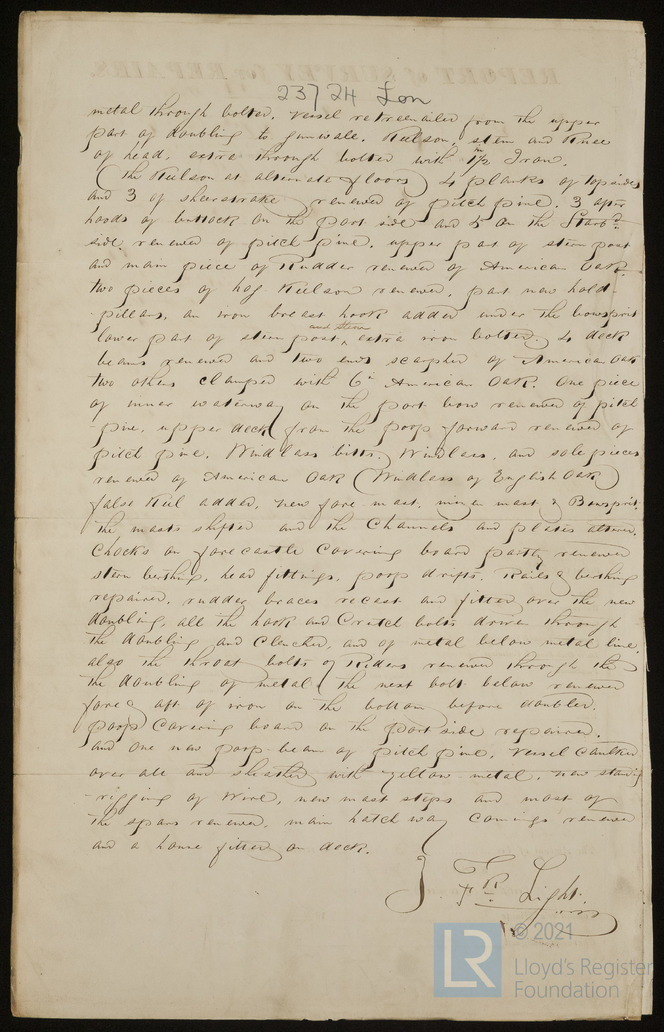 REPORT of SURVEY for REPAIRS
23724 Lon
metal through bolted. Vessel retreenailed from the upper
part of doubling to gunwale. Keelson, stem and Knee
of head, extra through bolted with 1 1/2 in Iron.
(the Keelson at alternate floors) 4 planks of topsides
and 3 of sheerstrake renewed of pitch pine. 3 after
hoods of buttock on the port side and 5 on the Starbd
side renewed of pitch pine. upper part of stern post
and main piece of Rudder renewed of American Oak,
two pieces of hog Keelson renewed, part new hold
pillars, an iron breast hook added under the bowsprit
lower part of stern post and stern extra iron bolted. 4 deck
beams renewed and two ends scarphed of American Oak
two others clamped with 6in American Oak. One piece
of inner waterway on the port bow renewed of pitch
pine. upper deck from the poop forward renewed of
pitch pine. Windlass bitts, Windlass, and sole pieces
renewed of American Oak (Windlass of English Oak)
false Keel added, new fore mast, mizen mast & Bowsprit.
the masts shifted and the Channels and plates altered.
Chocks on forecastle Covering board partly renewed
stern berthing, head fittings, poop drifts, Rails & berthing
repaired. rudder braces recast and fitted over the new
doubling, all the hook and Crutch bolts driven through
the doubling and Clenched, and of metal below metal line.
also the throat bolts of Riders renewed through the
the doubling of metal (the next bolt below renewed
fore & aft of iron on the bottom before doubled.
poop Covering board on the port side repaired.
and one new poop beam of pitch pine. Vessel Caulked
over all and sheathed with yellow metal. new standg
rigging of Wire, new mast steps and most of
the spars renewed, main hatch way Comings renewed
and a house fitted on deck.
Fk Light
© 2021
LR
Lloyd's Register
Foundation